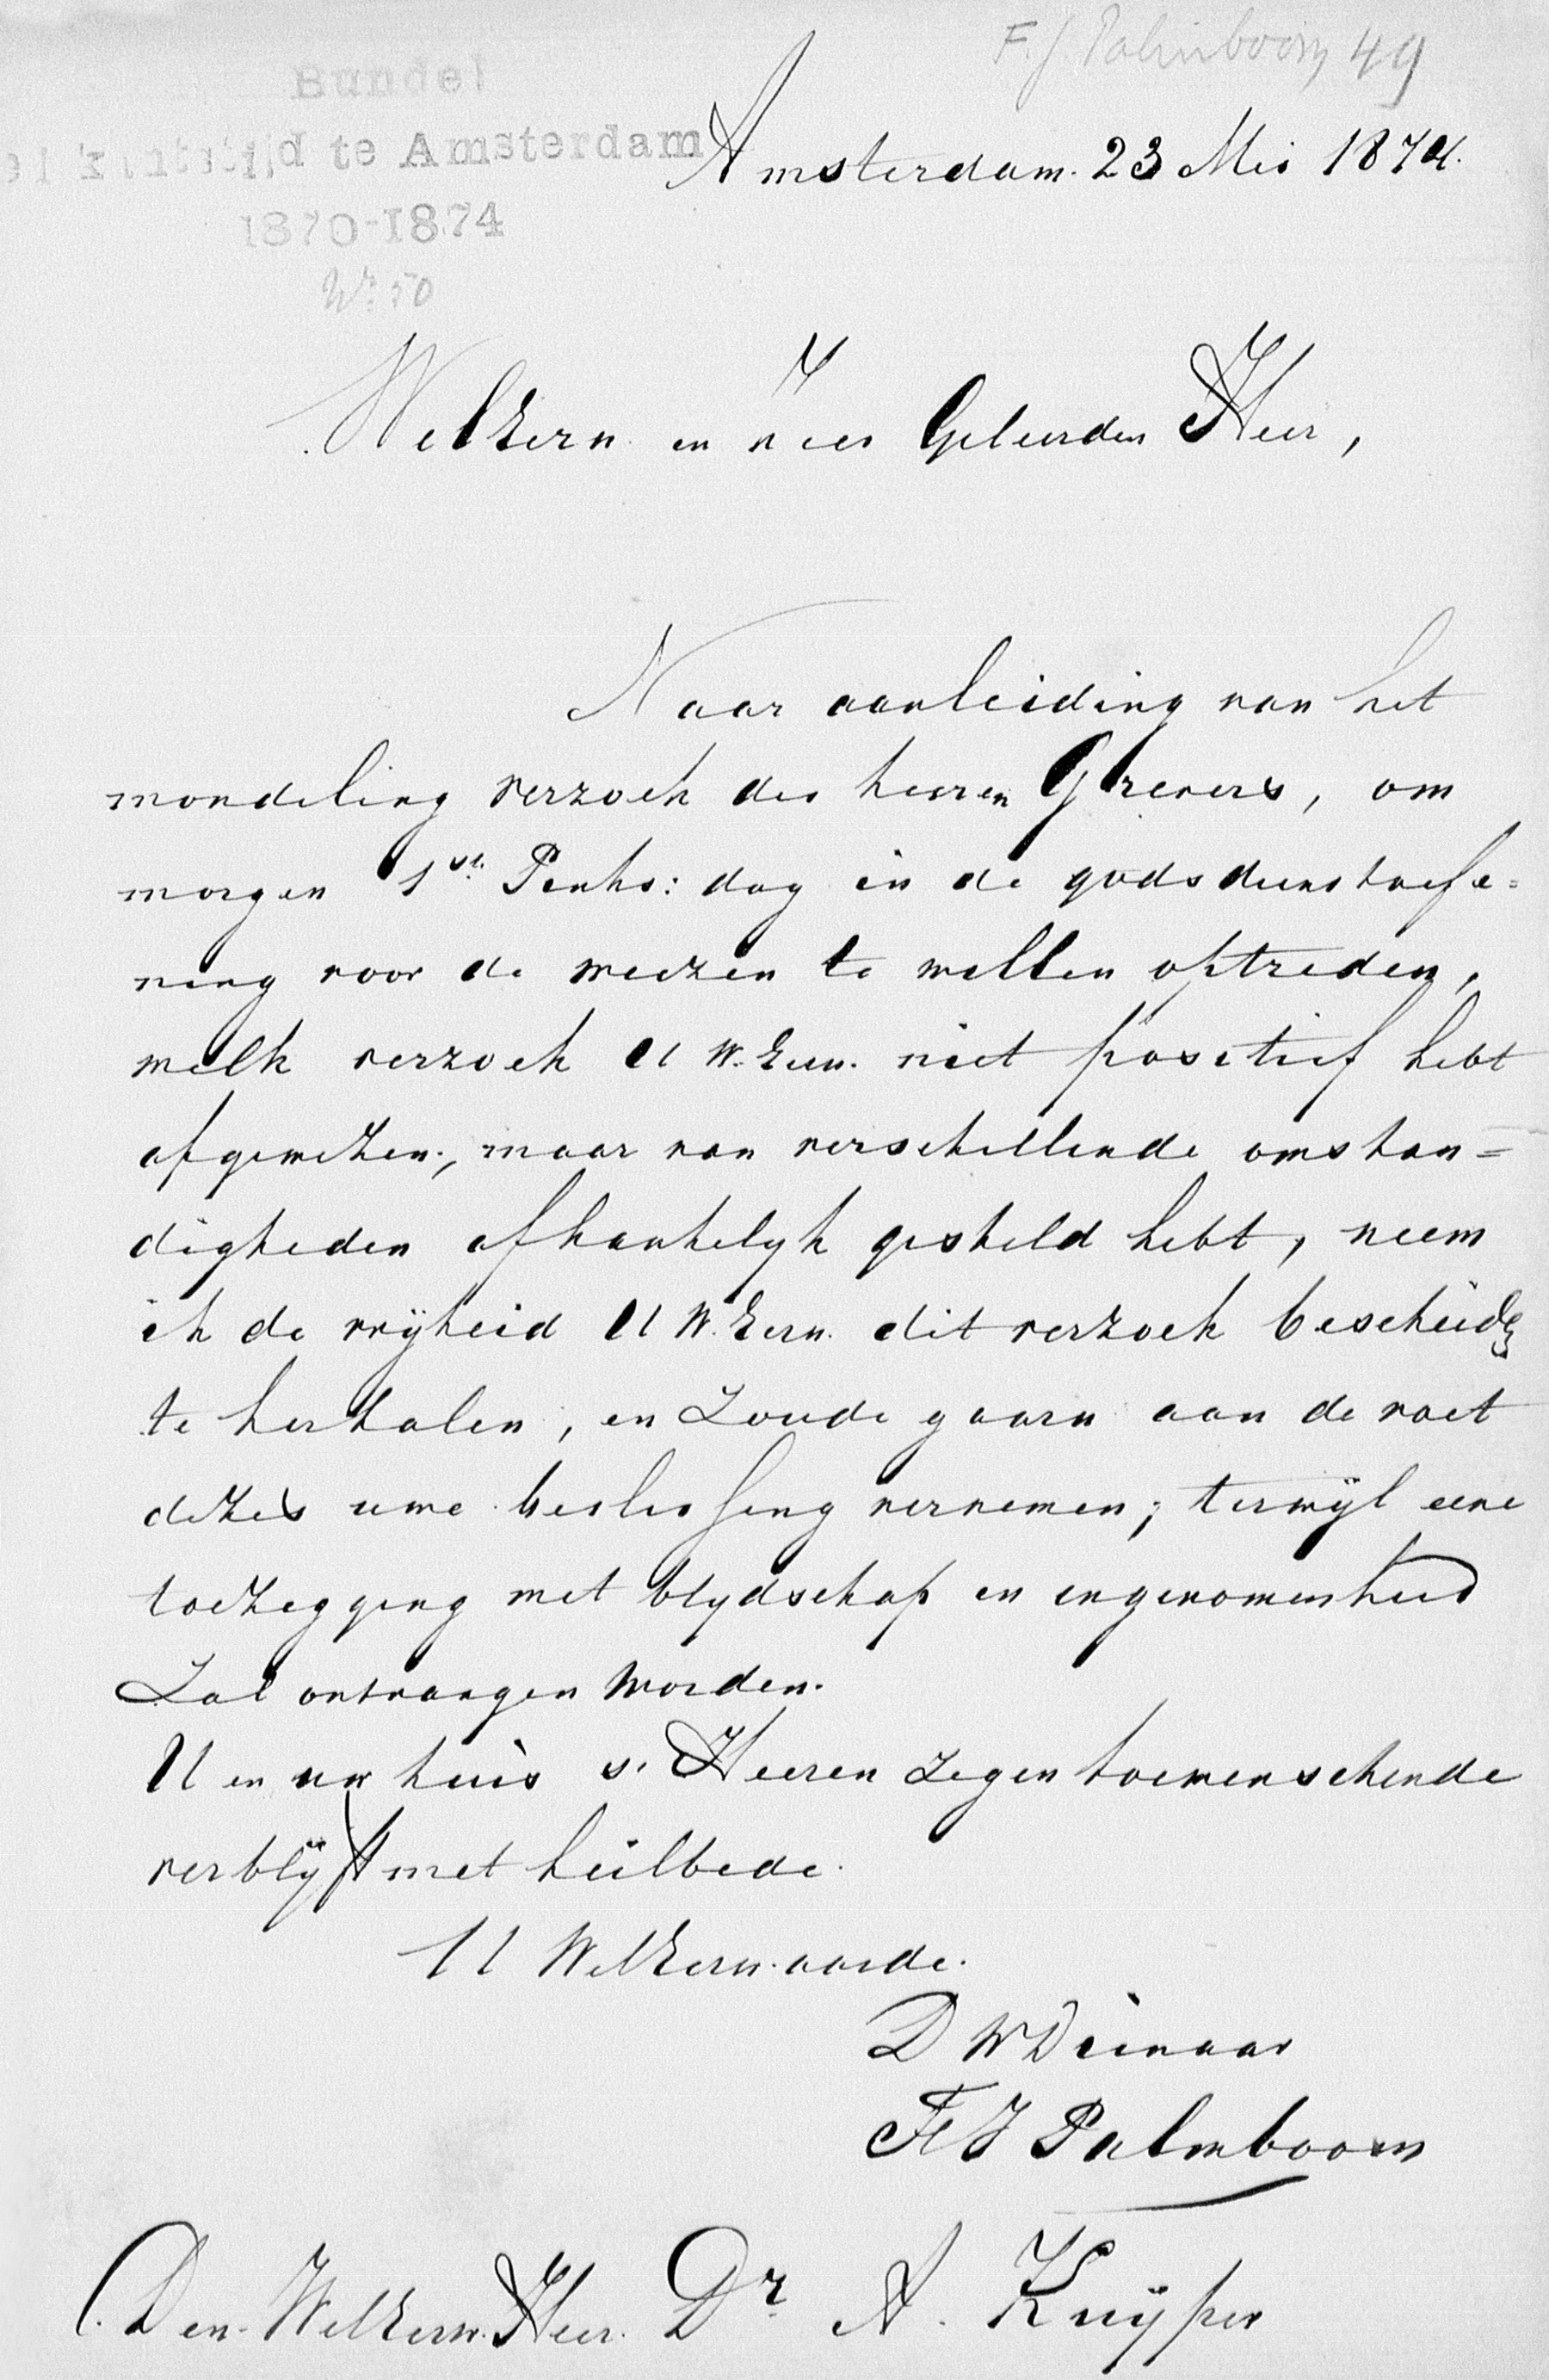 F. J. Palmboom 49
Bundel
te Amsterdam
1870-1874
No 50
Amsterdam. 23 Mei 1874.
WelEerw. en Zeer Geleerden Heer,
Naar aanleiding van het
mondeling verzoek des heeren Grevers, om
morgen 1ste Pinks: dag in de godsdienstoefe=
ning voor de weezen te willen optreden,
welk verzoek U W.Eerw. niet positief hebt
afgewezen, maar van verschillende omstan=
digheden afhankelijk gesteld hebt, neem
ik de vrijheid U W.Eerw. dit verzoek bescheiden
te herhalen, en Zoude gaarn aan de voet
dezes uwe beslissing vernemen; terwijl eene
toezegging met blydschap en ingenomenheid
Zal ontvangen worden.
U en uw huis s. Heeren zegen toewenschende
verblijft met heilbede.
U WelEerw. aarde.
D W Dienaar
F J Palmboom
Den WelEerw. Heer. Dr A. Kuijper